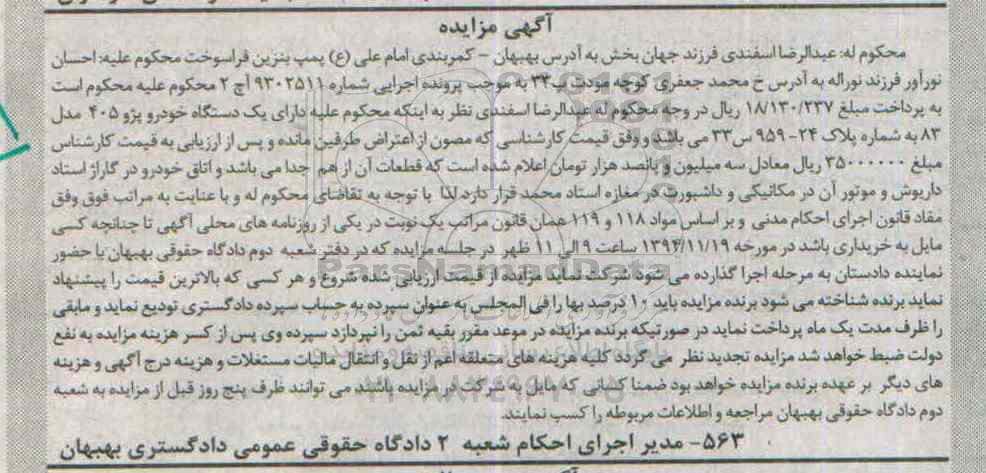 آگهی مزایده
محکوم له: عبدالرضا اسفندی فرزند جهان بخش به آدرس بهبهان – کمربندی امام علی (ع) پمپ بنزین فراسوخت محکوم علیه: احسان
نورآور فرزند نوراله به آدرس خ محمد جعفری کوچه مودت پ۳۴ به موجب پرونده اجرایی شماره ۹۳۰۲۵۱۱ آچ ۲ محکوم علیه محکوم است
به پرداخت مبلغ ۱۸/۱۳۰/۲۳۷ ریال در وجه محکوم له عبدالرضا اسفندی نظر به اینکه محکوم علیه دارای یک دستگاه خودرو پژو ۴۰۵ مدل
۸۳ به شماره پلاک ۲۴- ۹۵۹ س۳۳ می باشد و وفق قیمت کارشناسی که مصون از اعتراض طرفین مانده و پس از ارزیابی به قیمت کارشناس
مبلغ ۳۵۰۰۰۰۰۰ ریال معادل سه میلیون و پانصد هزار تومان اعلام شده است که قطعات آن از هم جدا می باشد و اتاق خودرو در گاراژ استاد
داریوش و موتور آن در مکانیکی و داشبورت در مغازه استاد محمد قرار دارد لذا با توجه به تقاضای محکوم له و با عنایت به مراتب فوق وفق
مفاد قانون اجرای احکام مدنی و بر اساس مواد ۱۱۸ و ۱۱۹ همان قانون مراتب یک نوبت در یکی از روزنامه های محلی آگهی تا چنانچه کسی
مایل به خریداری باشد در مورخه ۱۳۹۴/۱۱/۱۹ ساعت ۹ الی ۱۱ ظهر در جلسه مزایده که در دفتر شعبه دوم دادگاه حقوقی بهبهان با حضور
نماینده دادستان به مرحله اجرا گذارده می شود شرکت نماید مزایده از قیمت ارزیابی شده شروع و هر کسی که بالاترین قیمت را پیشنهاد
نماید برنده شناخته می شود برنده مزایده باید ۱۰ درصد بها را فی المجلس به عنوان سپرده به حساب سپرده دادگستری تودیع نماید و مابقی
را ظرف مدت یک ماه پرداخت نماید در صورتیکه برنده مزایده در موعد مقرر بقیه ثمن را نپردازد سپرده وی پس از کسر هزینه مزایده به نفع
دولت ضبط خواهد شد مزایده تجدید نظر می گردد کلیه هزینه های متعلقه اعم از نقل و انتقال مالیات مستغلات و هزینه درج آگهی و هزینه
های دیگر بر عهده برنده مزایده خواهد بود ضمنا کسانی که مایل به شرکت در مزایده باشند می توانند ظرف پنج روز قبل از مزایده به شعبه
دوم دادگاه حقوقی بهبهان مراجعه و اطلاعات مربوطه را کسب نمایند.
۵۶۳- مدیر اجرای احکام شعبه ۲ دادگاه حقوقی عمومی دادگستری بهبهان